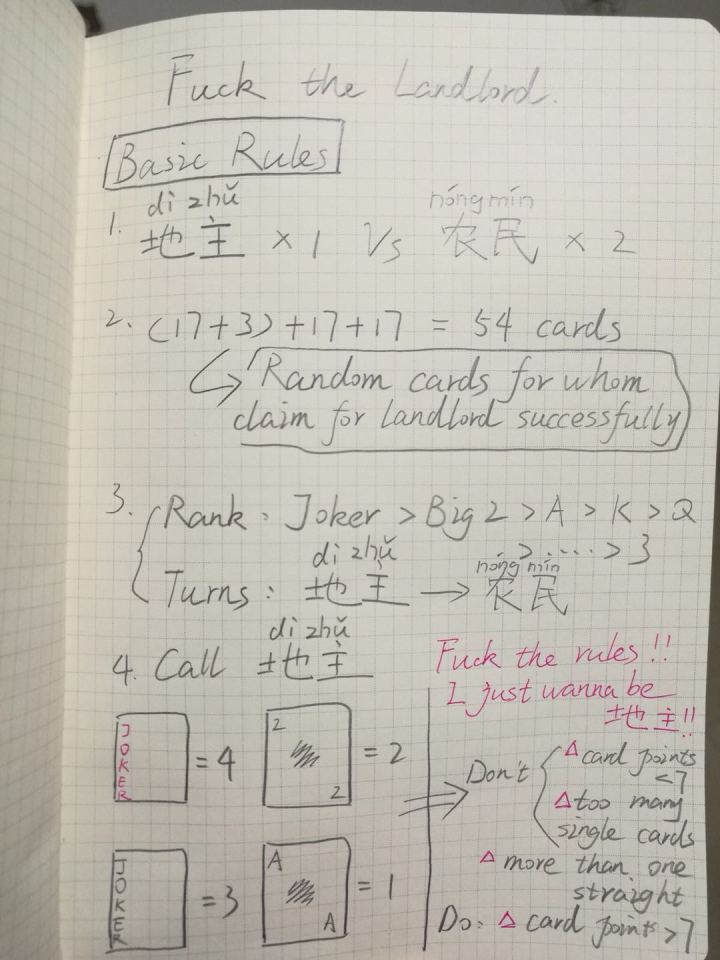 Fuck the Landlord.
Basic Rules
dì zhǔ nóng mín
1. 地主 × 1 Vs 农民 × 2
2. (17+3)+17+17 = 54 cards
Random cards for whom
claim for landlord successfully
3. Rank: Joker > Big 2 > A > K > Q
> ..... > 3
dì zhǔ nóng mín
Turns: 地主 → 农民
dì zhǔ
4. Call 地主
Fuck the rules!!
I just wanna be
地主!!
JOKER = 4
2 2 = 2
JOKER = 3
A A = 1
Don't
△ card points
< 7
△ too many
single cards
△ more than one
straight
Do: △ card points > 7